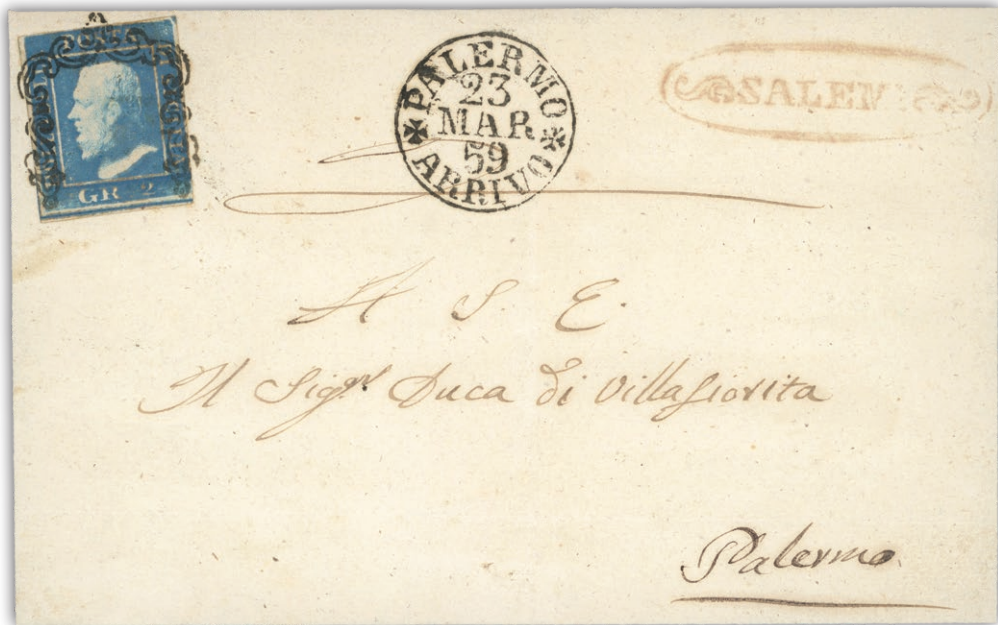 GR 2
PALERMO
23
MAR
59
ARRIVO
SALEM
A S. E.
Il Sigr Duca di Villafiorita
Palermo